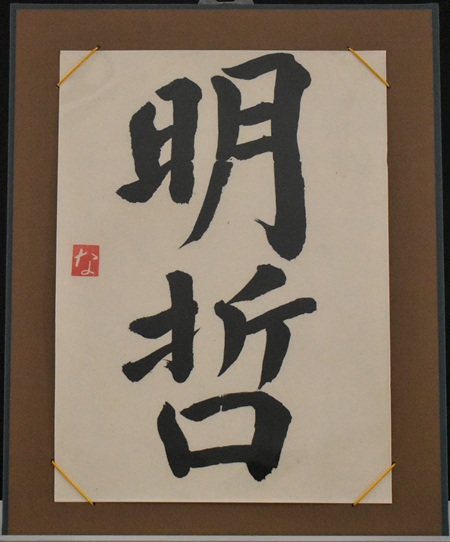 明哲
な